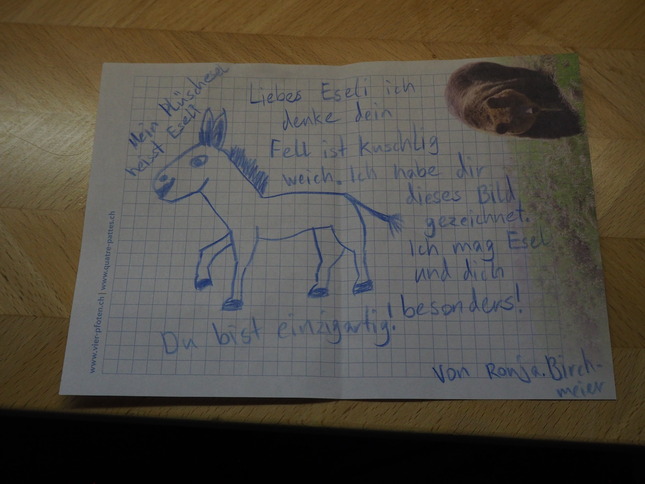 Mein Plüschen
heisst Eseli
Liebes Eseli ich
denke dein
Fell ist kuschlig
weich. Ich habe dir
dieses Bild
gezeichnet.
Ich mag Esel
und dich
besonders!
Du bist einzigartig!
Von Ronja.Birch-
meier
www.vier-pfoten.ch | www.quatre-pattes.ch